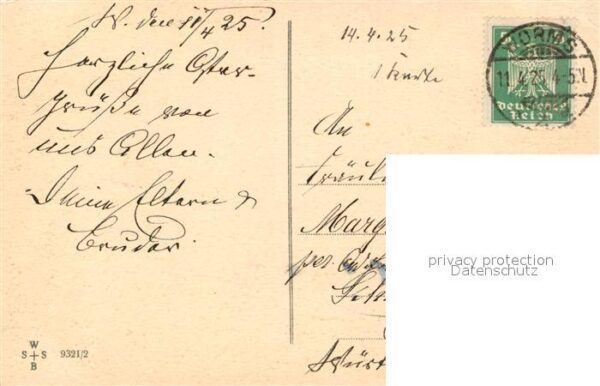 W. den 11/4 25.
Herzliche Oster-
grüße von
uns Allen.
Deine Eltern &
Bruder.
14.4.25
1 Karte
WORMS
11.4.25.4-5N.
5
Deutsches
Reich
An
Fräul
Marg
per.
Würt
privacy protection
Datenschutz
W
S S
B
9321/2